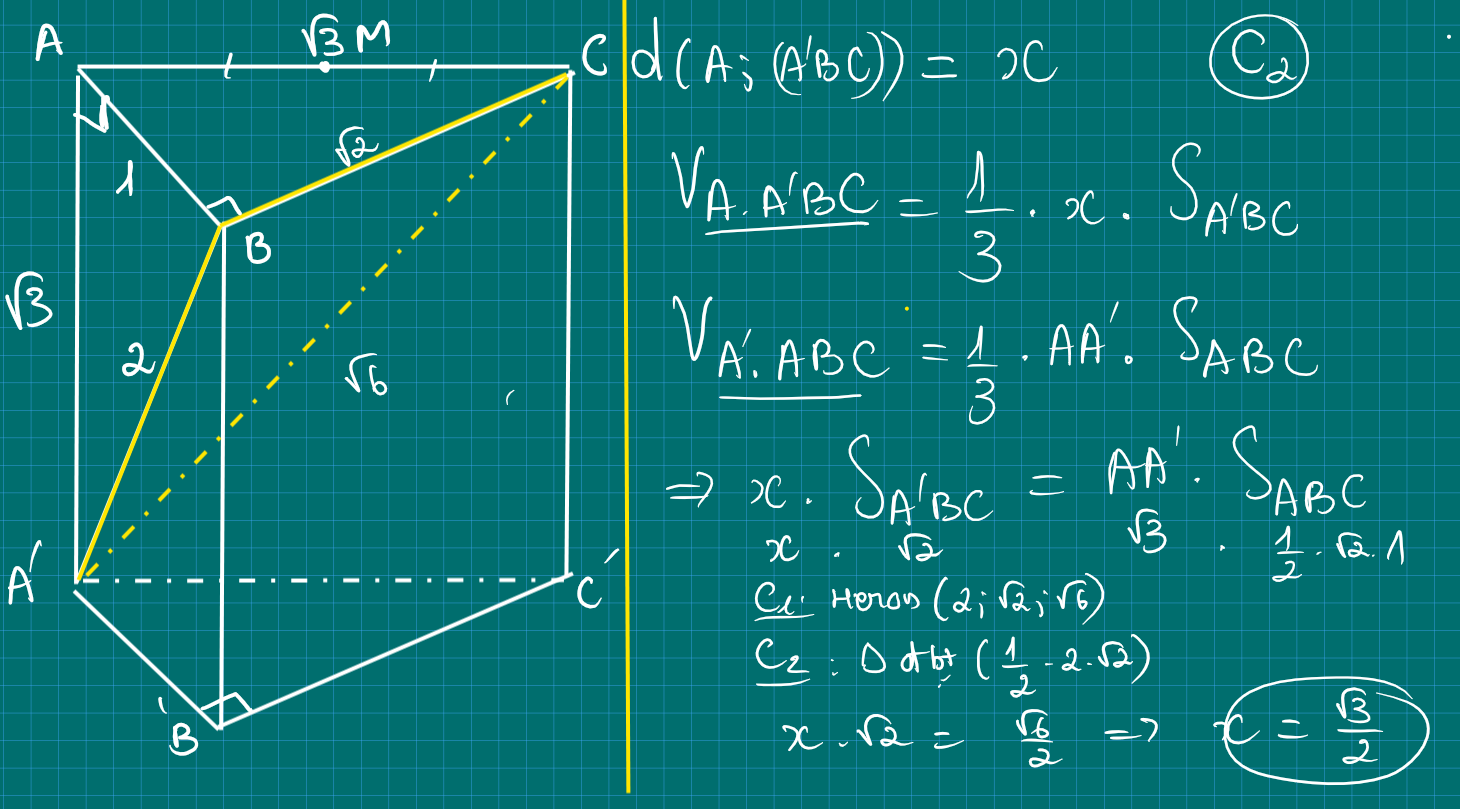 A √3 M C
1 √2
B
√3 2 √6
A' C'
'B
d(A; (A'BC)) = x C₂
V_{A.A'BC} = 1/3 . x . S_{A'BC}
V_{A'.ABC} = 1/3 . AA' . S_{ABC}
⇒ x . S_{A'BC} = AA' . S_{ABC}
x . √2 √3 . 1/2 . √2 . 1
C₁: Heron (2; √2; √6)
C₂ : Δ (1/2 . 2 . √2)
x . √2 = √6/2 ⇒ x = √3/2